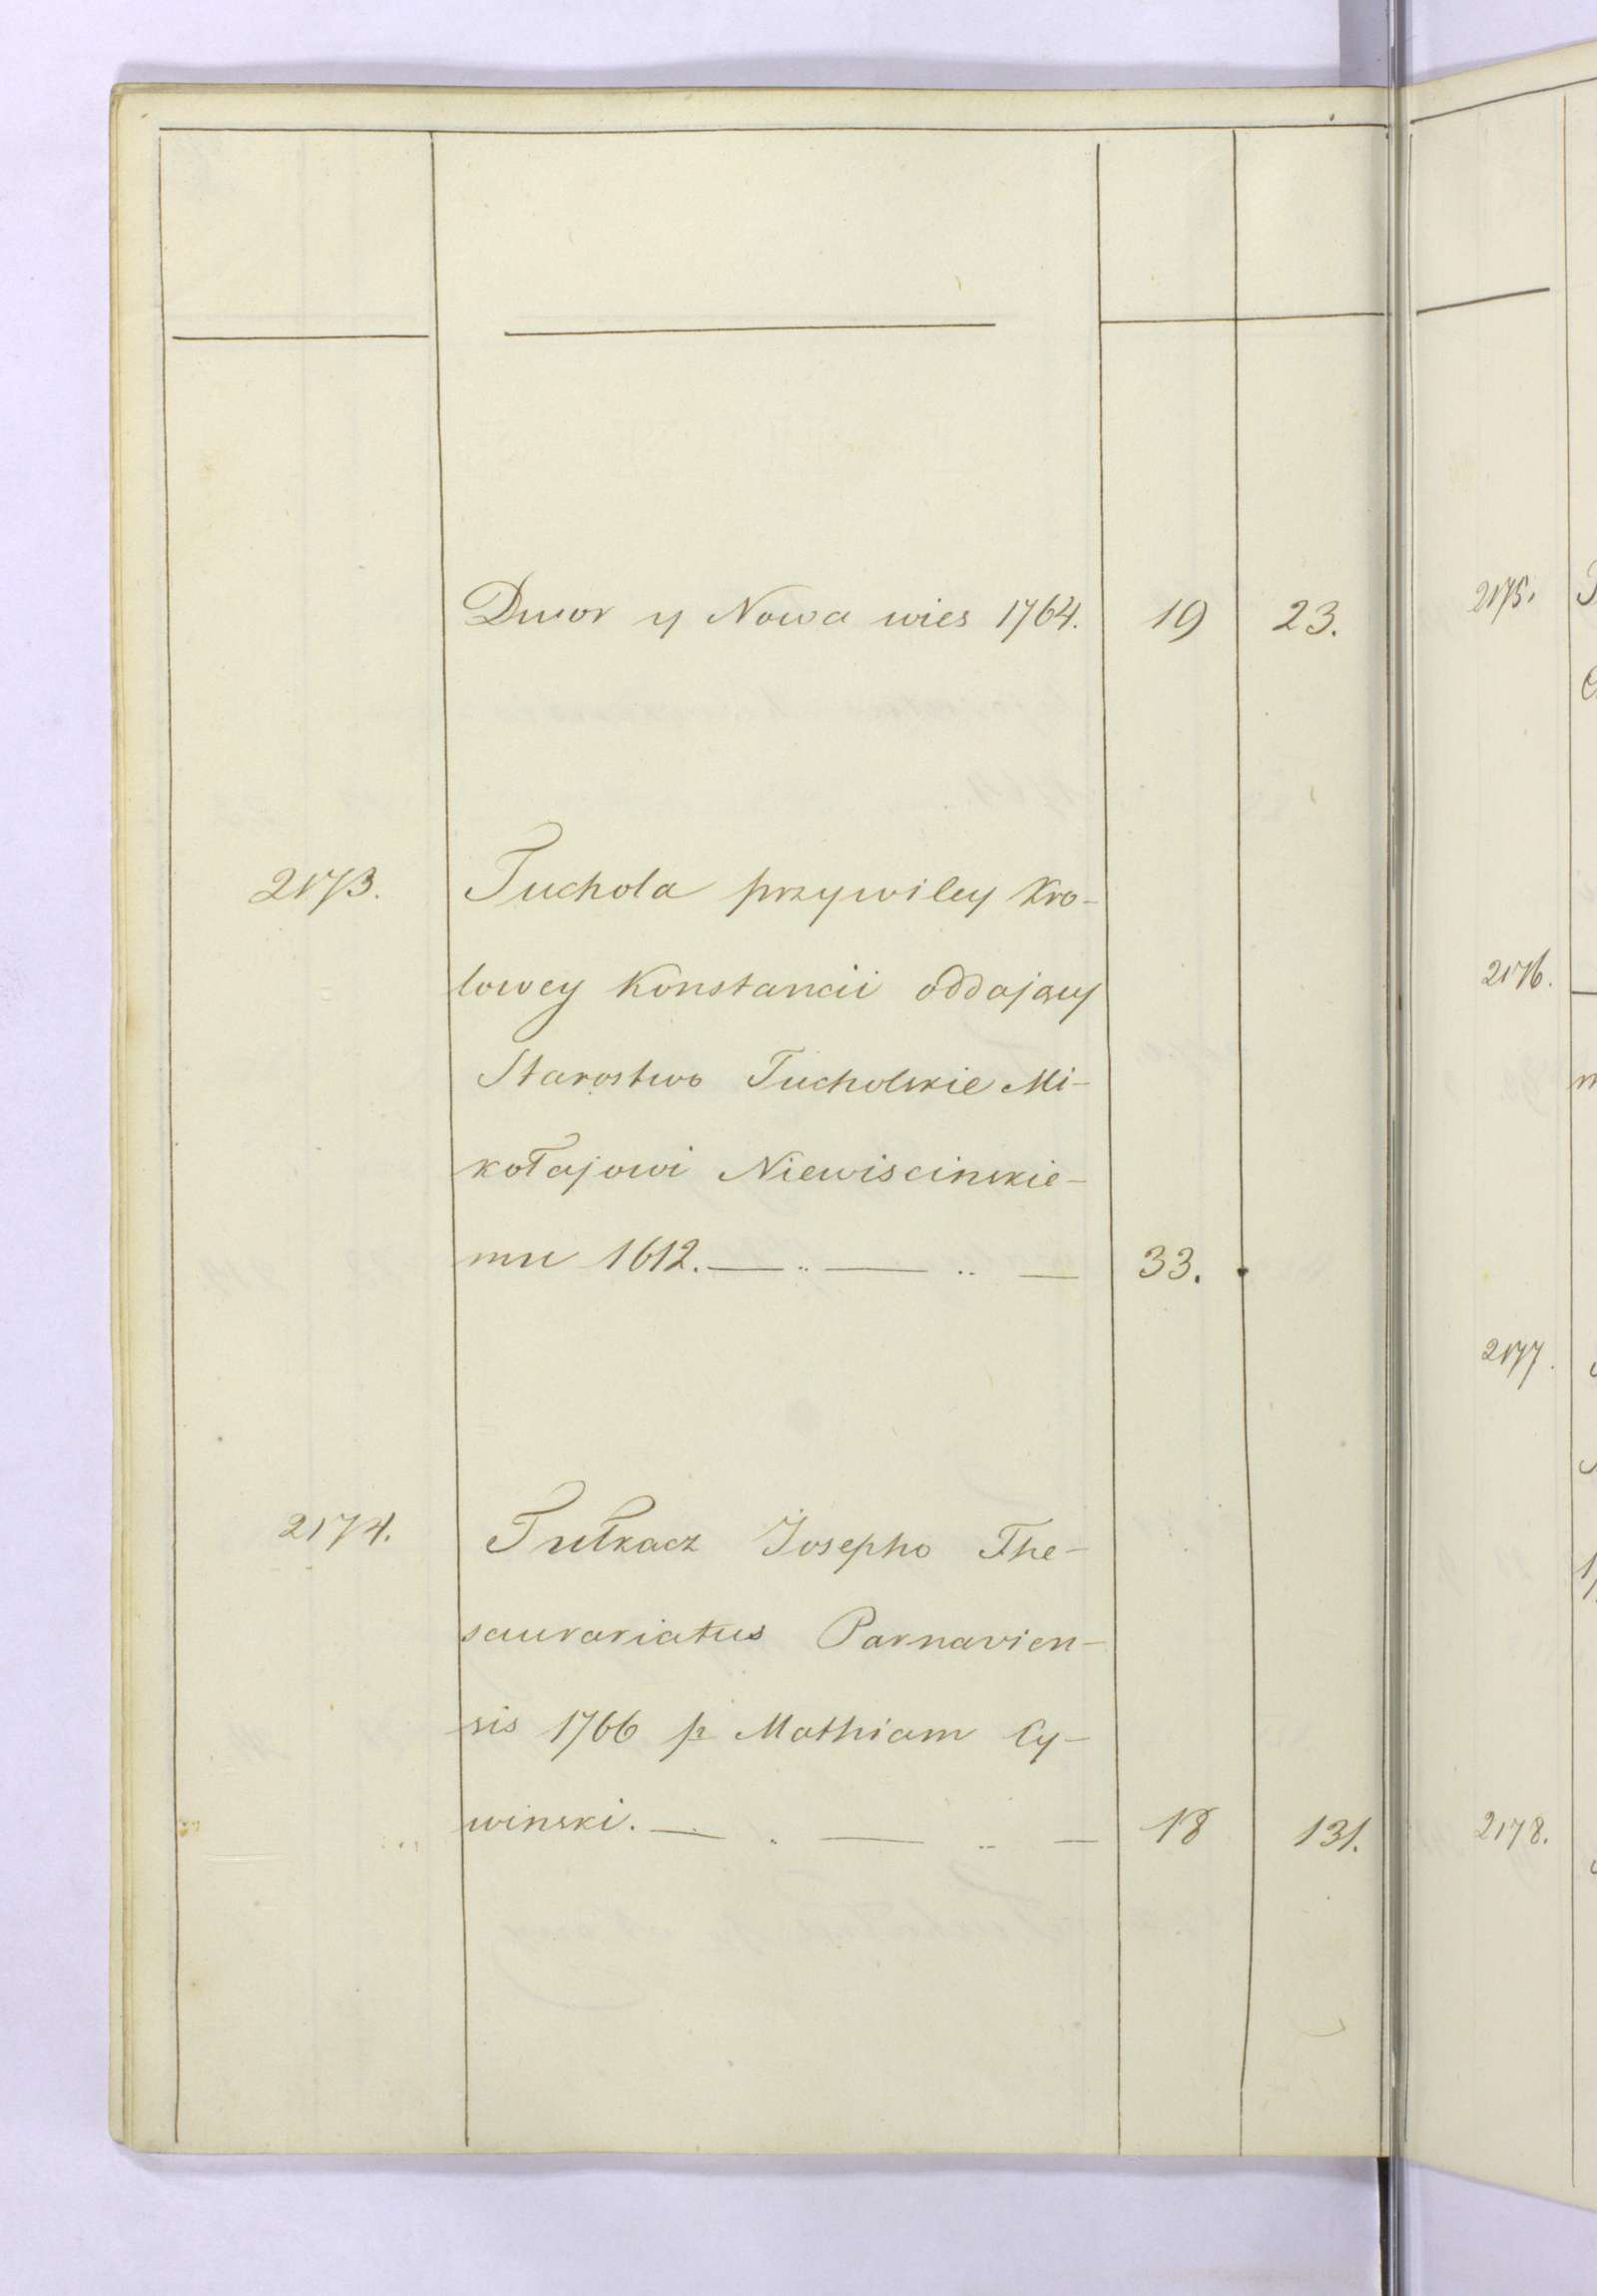 Dwor y Nowa wies 1764. 19 23.
2173. Tuchola przywiley Kro-
lowey Konstancii oddający
Starostwo Tucholskie Mi-
kołajowi Niewiscinskie-
mu 1612. — .. — .. — 33.
2174. Tułkacz Josepho The-
saurariatus Parnavien-
sis 1766 p Mathiam Cy-
winski. — . — .. — 18 131.
2175.
2176.
2177.
2178.